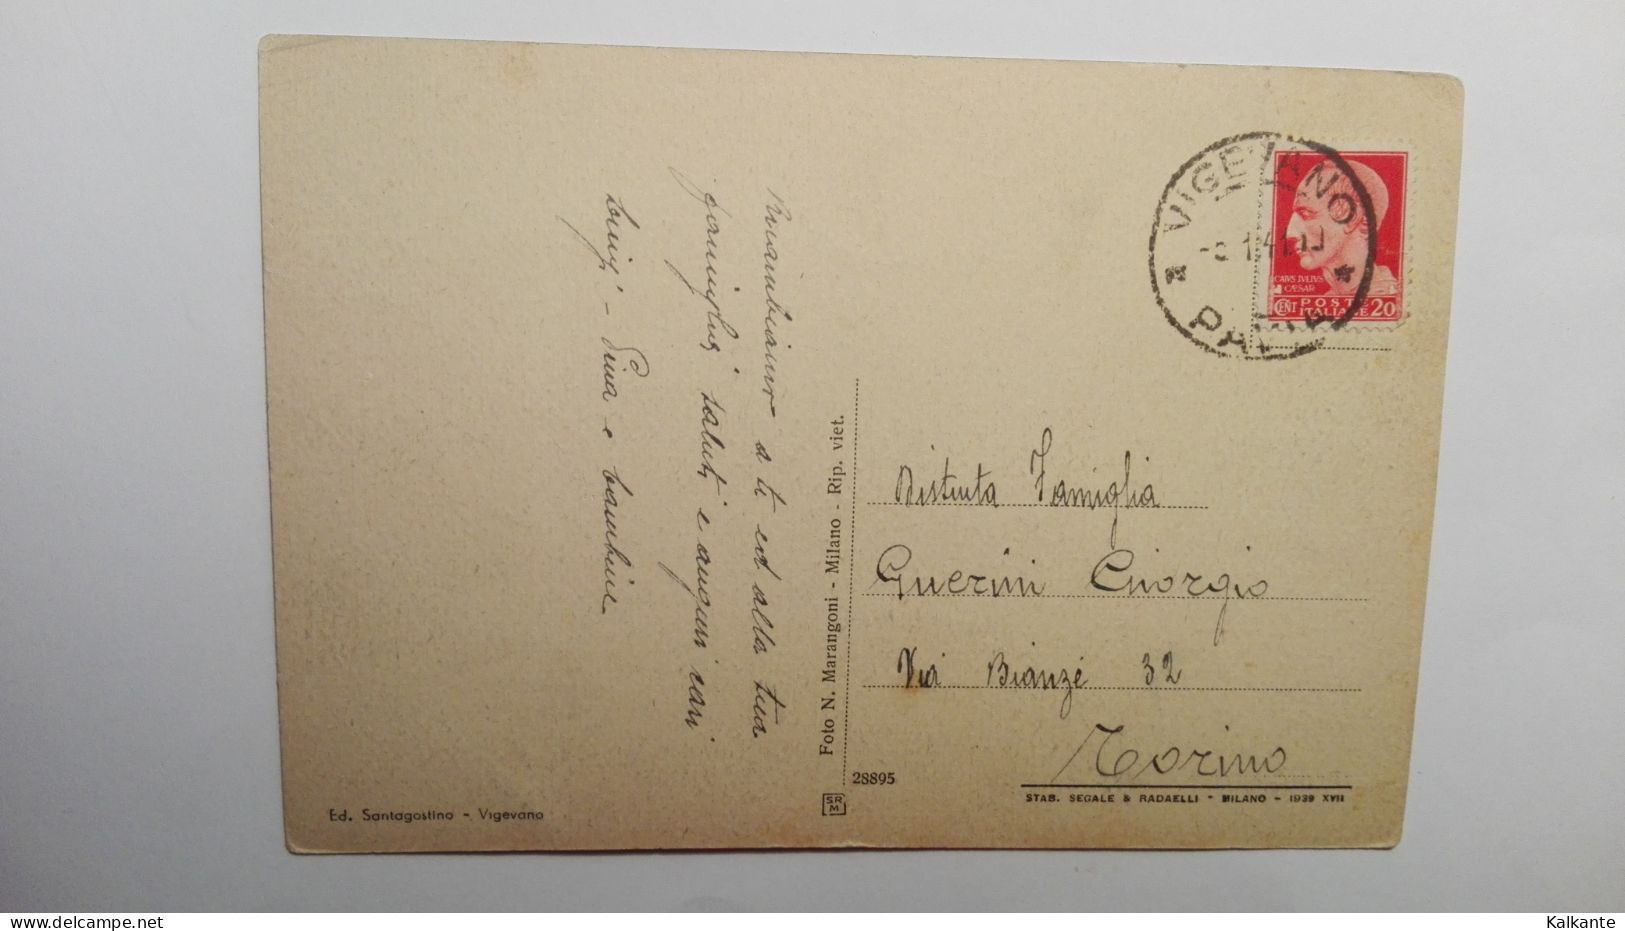 Ricambiamo a ti ed alla tua
famiglia saluti e auguri cari
Luigi - Pina e bambine
Foto N. Marangoni - Milano - Rip. viet.
VIGEVANO
PAVIA
CAIVS IVLIVS
CAESAR
CENT POSTE
ITALIANE 20
Distinta Famiglia
Guerini Giorgio
Via Bianzé 32
Torino
28895
SR
M
STAB. SEGALE & RADAELLI - MILANO - 1939 XVII
Ed. Santagostino - Vigevano
Kalkante